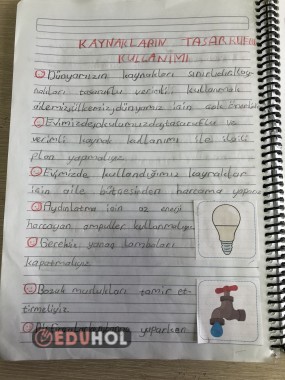 KAYNAKLARIN TASARRUFLU
KULLANIMI
Dünyamızın kaynakları sınırlıdır. Kay-
nakları tasarruflu verimli kullanmak
ailemiz, ülkemiz, dünyamız için çok önemlidir
Evimizde, okulumuzda, tasarruflu ve
verimli kaynak kullanımı ile ilgili
plan yapmalıyız.
Evimizde kullandığımız kaynaklar
için aile bütçesinden harcama yaparız
Aydınlatma için az enerji
harcayan ampuller kullanmalıyız
Gereksiz yanan lambaları
kapatmalıyız.
Bozuk muslukları tamir et-
tirmeliyiz.
yaparken
EDUHOL